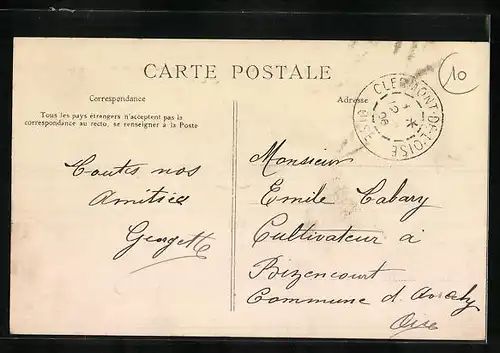 CARTE POSTALE
10
Correspondance
Adresse
Tous les pays étrangers n'acceptent pas la
correspondance au recto, se renseigner à la Poste
CLERMONT-DE-L'OISE
OISE
Toutes nos
Amitiés
Georgette
Monsieur
Emile Cabary
Cultivateur à
Bizencourt
Commune d.
Oise